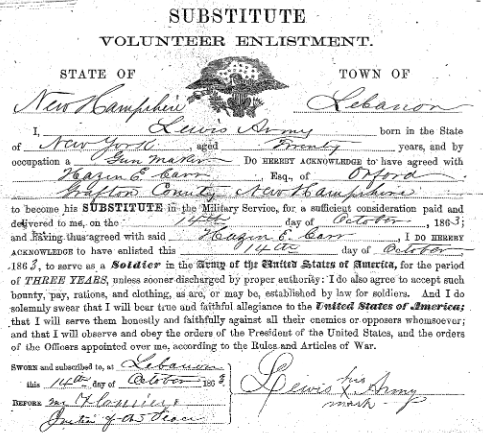 SUBSTITUTE
VOLUNTEER ENLISTMENT.
STATE OF TOWN OF
New Hampshire Lebanon
I, Lewis Army born in the State
of New York, aged Twenty years, and by
occupation a Gun Maker DO HEREBY ACKNOWLEDGE to have agreed with
Hazen E. Carr, Esq., of Orford
Grafton County New Hampshire
to become his SUBSTITUTE in the Military Service, for a sufficient consideration paid and
delivered to me, on the 14th day of October, 1863;
and having thus agreed with said Hazen E. Carr, I DO HEREBY
ACKNOWLEDGE to have enlisted this 14th day of October
1863, to serve as a Soldier in the Army of the United States of America, for the period
of THREE YEARS, unless sooner discharged by proper authority: I do also agree to accept such
bounty, pay, rations, and clothing, as are, or may be, established by law for soldiers. And I do
solemnly swear that I will bear true and faithful allegiance to the United States of America;
that I will serve them honestly and faithfully against all their enemies or opposers whomsoever;
and that I will observe and obey the orders of the President of the United States, and the
orders of the Officers appointed over me, according to the Rules and Articles of War.
SWORN and subscribed to, at Lebanon
this 14th day of October 1863
BEFORE
Justice of the Peace
Lewis his X Army
mark